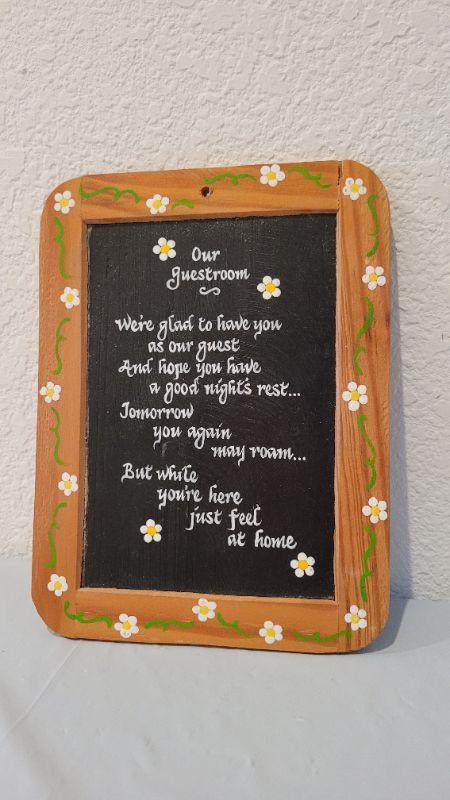 Our
guestroom
We're glad to have you
as our guest
And hope you have
a good night's rest...
Tomorrow
you again
may roam...
But while
you're here
just feel
at home